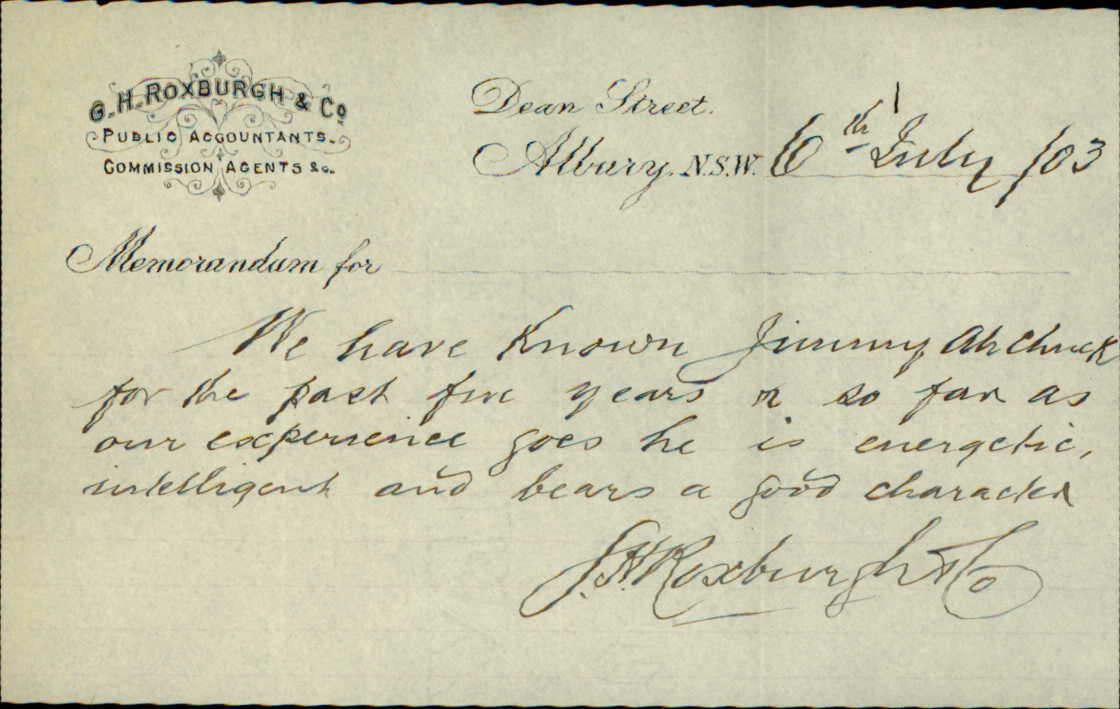 G. H. ROXBURGH & Co
PUBLIC ACCOUNTANTS.
COMMISSION AGENTS &c.
Dean Street.
Albury, N.S.W. 6th July /03
Memorandum for
We have known Jimmy Ah Chuck
for the past five years & so far as
our experience goes he is energetic,
intelligent and bears a good character
G. H. Roxburgh & Co